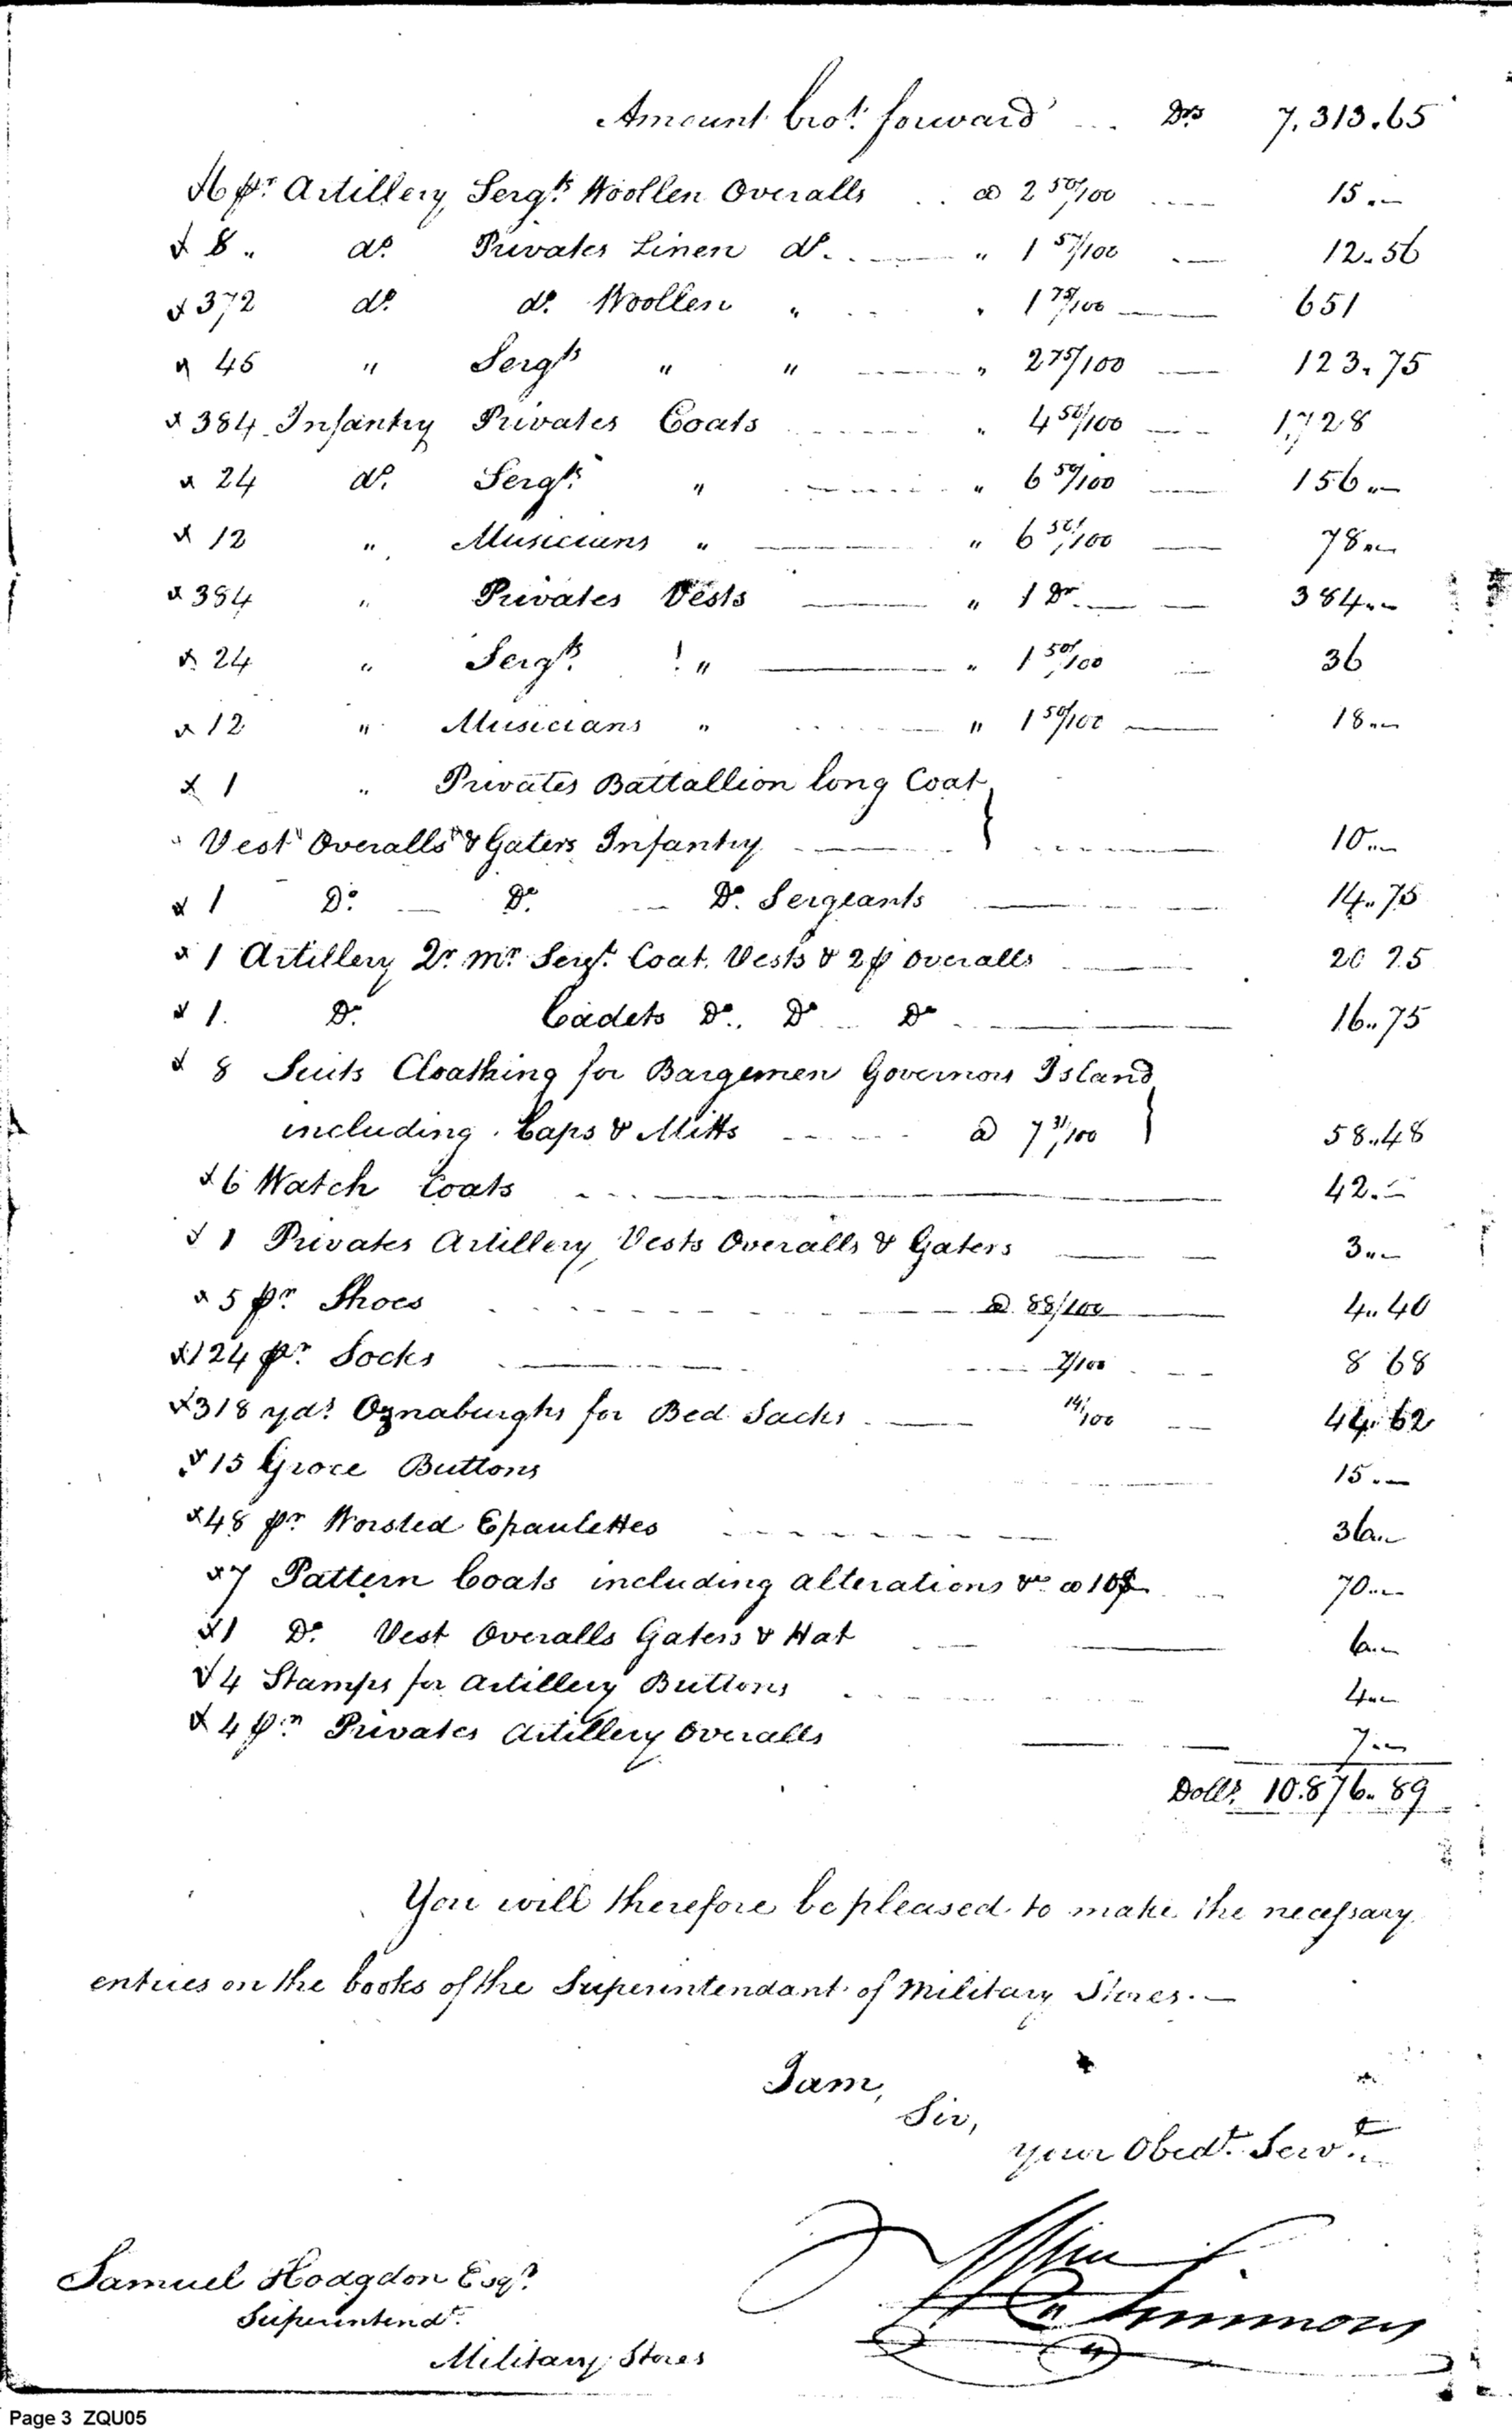 Amount bro.t forward ... Drs 7,313.65
x6 pr. Artillery Sergts. Woollen Overalls .. @ 2 50/100 .... 15.—
x 8 " do. Privates Linen do. . — " 1 57/100 — 12.56
x 372 do. do. Woollen " " 1 75/100 — 651
x 45 " Sergts " " — " 2 75/100 — 123.75
x 384 Infantry Privates Coats — " 4 50/100 — 1,728
x 24 do. Sergts. " — " 6 50/100 — 156 "—
x 12 " Musicians " — " 6 50/100 — 78 "—
x 384 " Privates Vests — " 1 Dr. — 384 "—
x 24 " Sergts. " — " 1 50/100 — 36
x 12 " Musicians " — " 1 50/100 — 18 "—
x 1 " Privates Battallion long Coat }
" Vest Overalls & Gaters Infantry — 10 "—
x 1 Do. — Do. — Do. Sergeants — 14.75
x 1 Artillery Qr. Mr. Sergt. Coat. Vests & 2 p Overalls — 20 25
x 1. Do. Cadets Do. Do Do — 16.75
x 8 Suits Cloathing for Bargemen Governors Island }
including Caps & Mitts — @ 7 31/100 58.48
x 6 Watch Coats — 42.—
x 1 Privates Artillery Vests Overalls & Gaters — 3 "—
x 5 pr. Shoes — @ 88/100 — 4.40
x 124 pr. Socks — 7/100 — 8 68
x 318 yds. Oznaburghs for Bed Sacks — 14/100 — 44.62
x 15 Groce Buttons — 15.—
x 48 pr Worsted Epaulettes — 36 "—
x 7 Pattern Coats including alterations &c @ 10$ — 70 "—
x 1 Do. Vest Overalls Gaters & Hat — 6 "—
x 4 Stamps for Artillery Buttons — 4 "—
x 4 prs Privates Artillery Overalls — 7 "—
Dolls. 10.876.89
You will therefore be pleased to make the necessary
entries on the books of the Superintendant of Military Stores.—
I am,
Sir,
your Obedt. Servt.
Wm Simmons
Samuel Hodgdon Esqr.
Superintendt.
Military Stores
Page 3 ZQU05